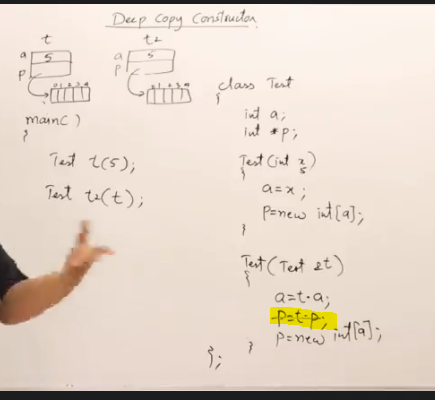 Deep Copy Constructor
t
t2
a 5
p
0 1 2 3 4
5
0 1 2 3 4
main()
{
Test t(5);
Test t2(t);
class Test
{
int a;
int *p;
Test(int x)
5
{
a=x;
p=new int[a];
}
Test(Test &t)
{
a=t.a;
p=t.p;
p=new int[a];
}
};